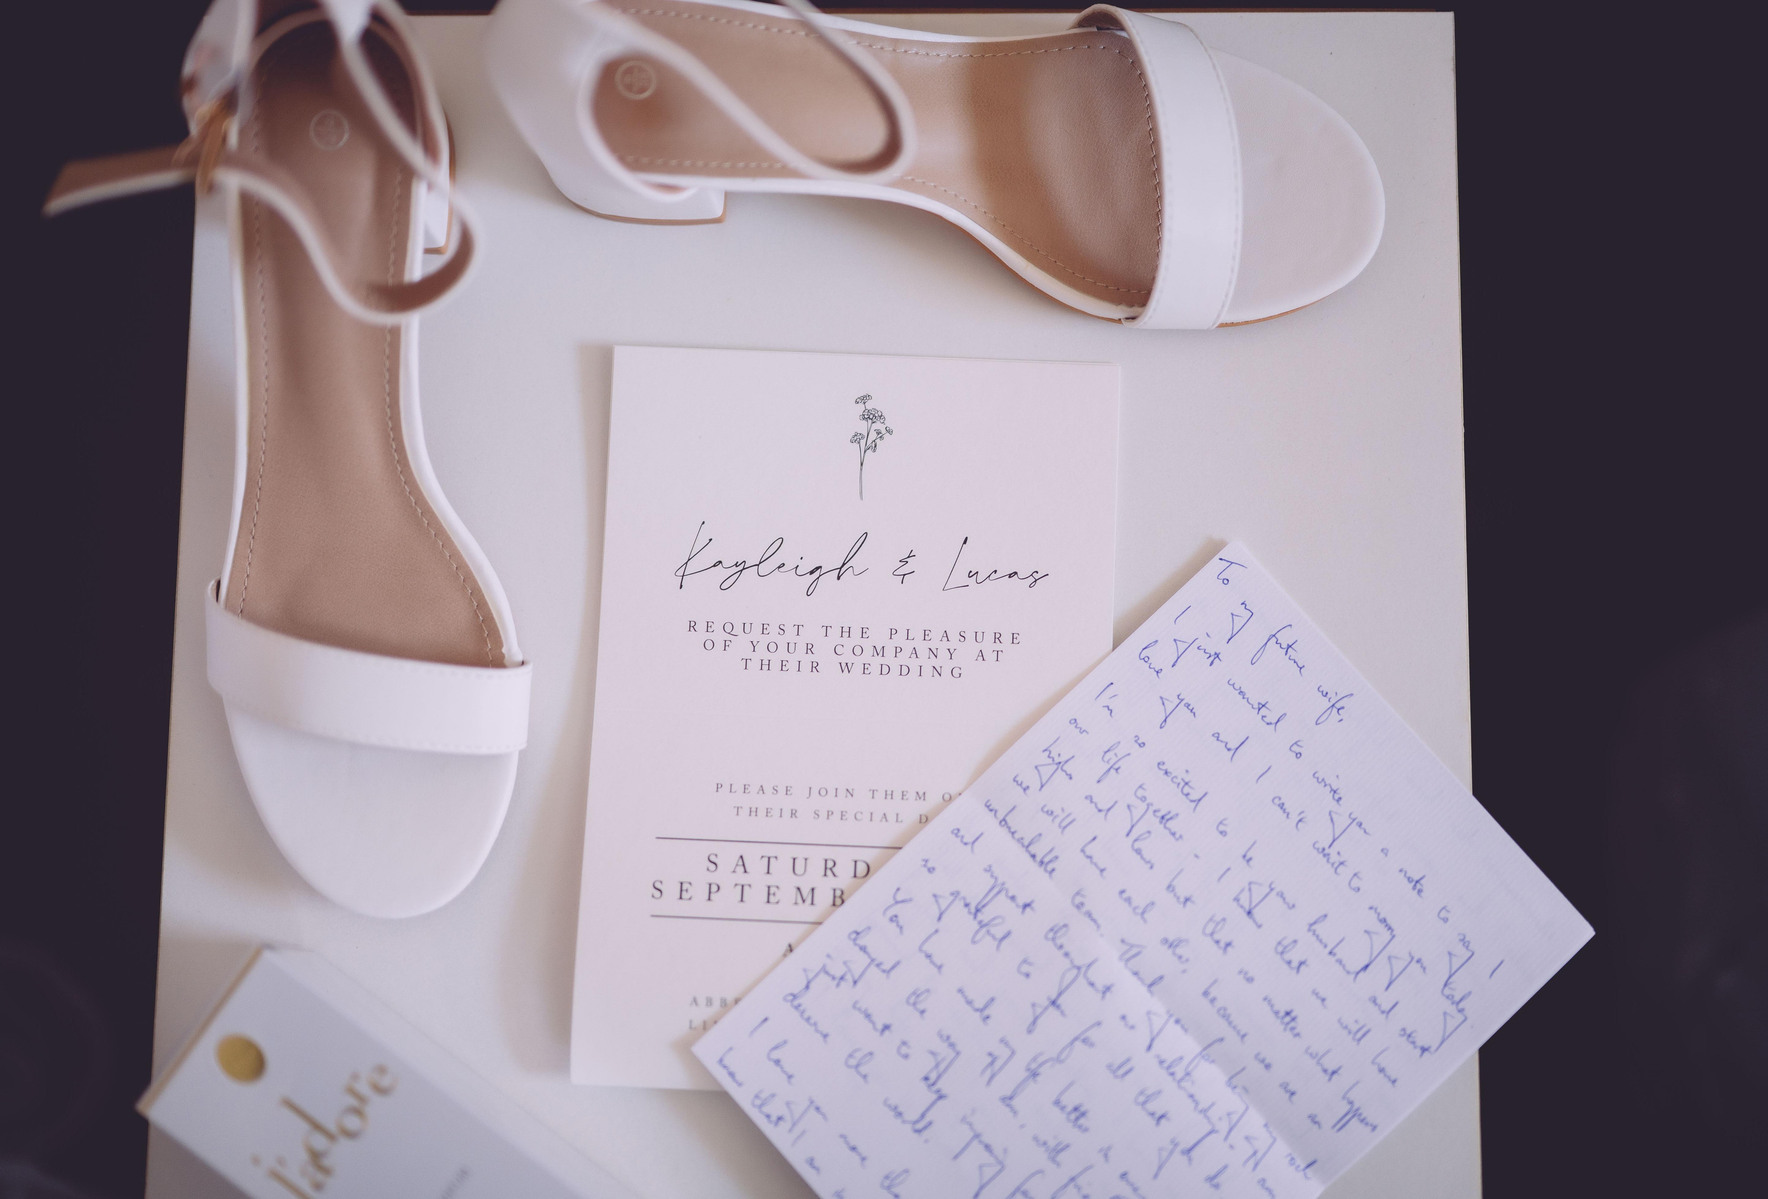 Kayleigh & Lucas
REQUEST THE PLEASURE
OF YOUR COMPANY AT
THEIR WEDDING
PLEASE JOIN THEM
THEIR SPECIAL
SATURD
SEPTEMB
To my future wife,
I just wanted to write you a note to say I
love you and I can't wait to marry you today.
I'm so excited to be your husband and start
our life together - I know that we will have
highs and lows but that no matter what happens
we will have each other, because we are an
unbreakable team. Thank you for being my rock
and support throughout our relationship. I am
so grateful to you for all that you do
You have made my life better in
changed the way I
just want to
deserve the world.
I love you more
know that I am
j'adore